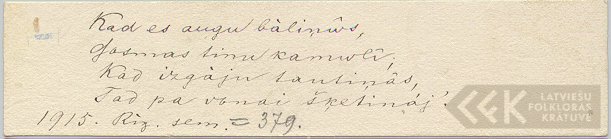 Kad es augu bāliņûs,
Gosmas tinu kamulī,
Kad izgāju tautiņâs,
Tad pa vonai šķetināj!
1915. Rīg. sem. = 379.
LATVIEŠU
FOLKLORAS
KRĀTUVE